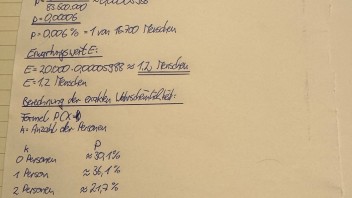 83.500.000 ≈ 0,00005988
p = 0,00006
p = 0,006 % = 1 von 16.700 Menschen
Erwartungswert E:
E = 20.000 · 0,00005988 ≈ 1,2 Menschen
E = 1,2 Menschen
Berechnung der exakten Wahrscheinlichkeit:
Formel P(X=k)
k = Anzahl der Personen
k P
0 Personen ≈ 30,1%
1 Person ≈ 36,1%
2 Personen ≈ 21,7%